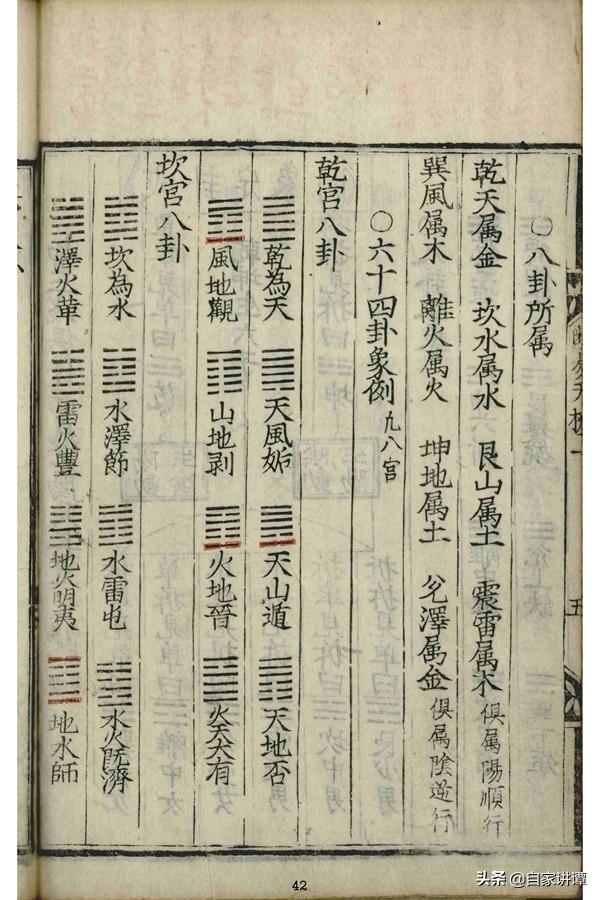 ○八卦所属
乾天属金 坎水属水 艮山属土 震雷属木 俱属陽順行
巽風属木 離火属火 坤地属土 兌澤属金 俱属陰逆行
○六十四卦象例 九八宮
乾宮八卦
乾為天 天風姤 天山遁 天地否
風地觀 山地剥 火地晉 火天大有
坎宮八卦
坎為水 水澤節 水雷屯 水火既濟
澤火革 雷火豐 地火明夷 地水師
五
42
头条 @自家讲谭